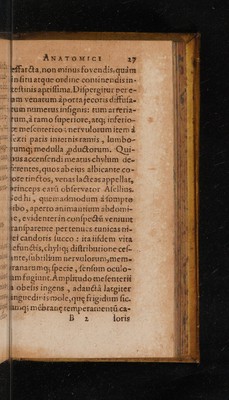 ANATOMICI 27
effarcta, non minus fovendis, quàm
in situ atque ordine continendis in-
testinis aptissima. Dispergitur per e-
am venarum à porta jecoris diffusa-
rum numerus insignis: tum arteria-
rum, à ramo superiore, atq; inferio-
re mesenterico: nervulorum item à
sexti paris internis ramis, lumbo-
rumq; medulla productorum. Qui-
bus accensendi meatus chylum de-
ferentes, quos ab eius albicante co-
lore tinctos, venas lacteas appellat,
princeps earū observator Asellius.
Sed hi, quemadmodum à sumpto
cibo, aperto animantium abdomi-
ne, evidenter in conspectū veniunt
transparente per tenues tunicas ni-
vei candoris succo: ita iisdem vita
defunctis, chyliq; distributione ces-
sante, subtilium nervulorum, mem-
branarumq; specie, sensum oculo-
rum fugiunt. Amplitudo mesenterii
in obesis ingens, adauctâ largiter
pinguedinis mole, quę frigidum sic-
cumq; mēbranę temperamentū ca-
B 2 loris